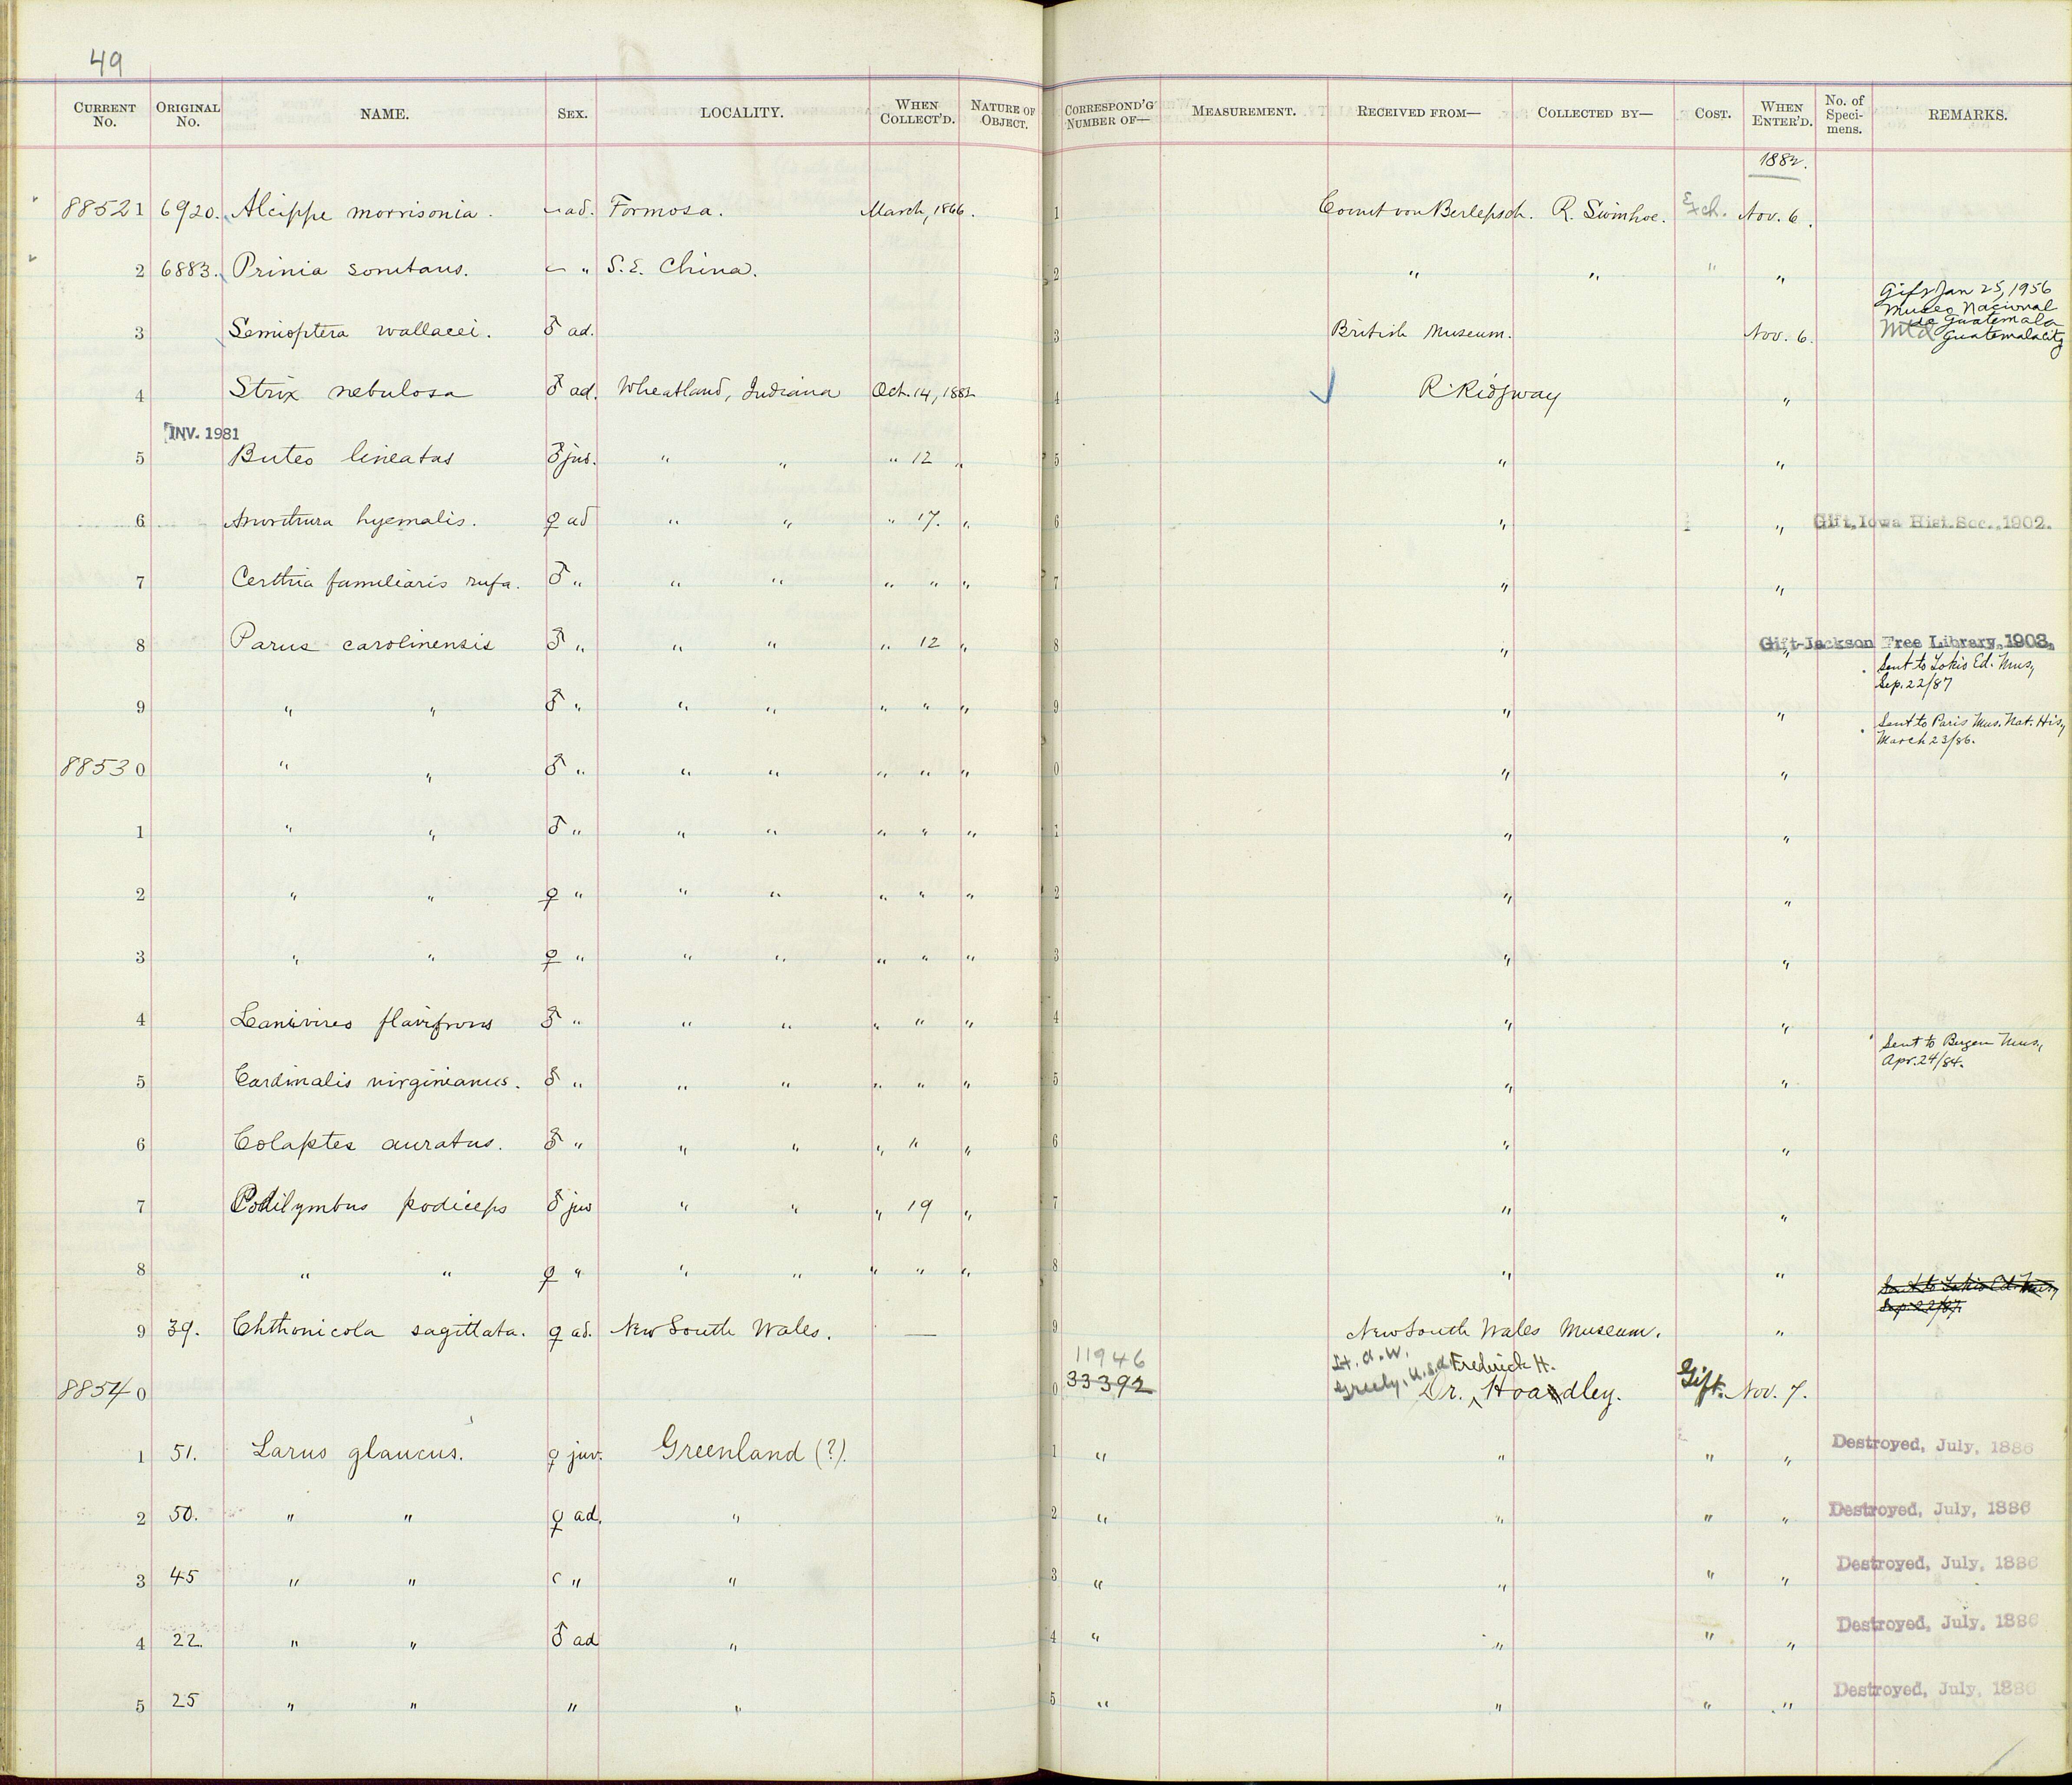 49
CURRENT No. ORIGINAL No. NAME. SEX. LOCALITY. WHEN COLLECT'D. NATURE OF OBJECT. CORRESPOND'G NUMBER OF— MEASUREMENT. RECEIVED FROM— COLLECTED BY— COST. WHEN ENTER'D. No. of Specimens. REMARKS.
1882.
88521 6920. Alcippe morrisonia. – ad. Formosa. March, 1866. 1 Count von Berlepsch. R. Swinhoe. Exch. Nov. 6.
2 6883. Prinia sonitans. – " S.E. China. 2 " " " "
Gift Jan 25, 1956
Museo Nacional
de Guatemala
3 Semioptera wallacei. ♂ ad. 3 British Museum. Nov. 6. Mtd Guatemala City
4 Strix nebulosa ♂ ad. Wheatland, Indiana Oct. 14, 1882 4 R. Ridgway "
INV. 1981
5 Buteo lineatus ♂ juv. " " " 12 " 5 " "
6 Anorthura hyemalis. ♀ ad " " " 17. " 6 " " Gift, Iowa Hist. Soc., 1902.
7 Certhia familiaris rufa. ♂ " " " " " " 7 " "
8 Parus carolinensis ♂ " " " " 12 " 8 " " Gift-Jackson Free Library, 1903.
Sent to Tokio Ed. Mus,
Sep. 22/87
9 " " ♂ " " " " " " 9 " "
Sent to Paris Mus. Nat. His,
March 23/86.
88530 " " ♂ " " " " " " 0 " "
1 " " ♂ " " " " " " 1 " "
2 " " ♀ " " " " " " 2 " "
3 " " ♀ " " " " " " 3 " "
4 Lanivireo flavifrons ♂ " " " " " " 4 " "
Sent to Bergen Mus.,
Apr. 24/84.
5 Cardinalis virginianus. ♂ " " " " " " 5 " "
6 Colaptes auratus. ♂ " " " " " " 6 " "
7 Podilymbus podiceps ♂ juv " " " 19 " 7 " "
8 " " ♀ " " " " " " 8 " "
Sent to Tokio Ed. Mus,
Sep. 22/87.
9 39. Chthonicola sagittata. ♀ ad. New South Wales. — 9 New South Wales Museum. "
11946 Lt. A. W.
Greely, U.S.A. Frederick H.
88540 0 33392 Dr. Hoadley. Gift. Nov. 7.
1 51. Larus glaucus. ♀ juv. Greenland (?). 1 " " " " Destroyed, July, 1886
2 50. " " ♀ ad. " 2 " " " " Destroyed, July, 1886
3 45 " " " " 3 " " " " Destroyed, July, 1886
4 22. " " ♂ ad " 4 " " " " Destroyed, July, 1886
5 25 " " " " 5 " " " " Destroyed, July, 1886